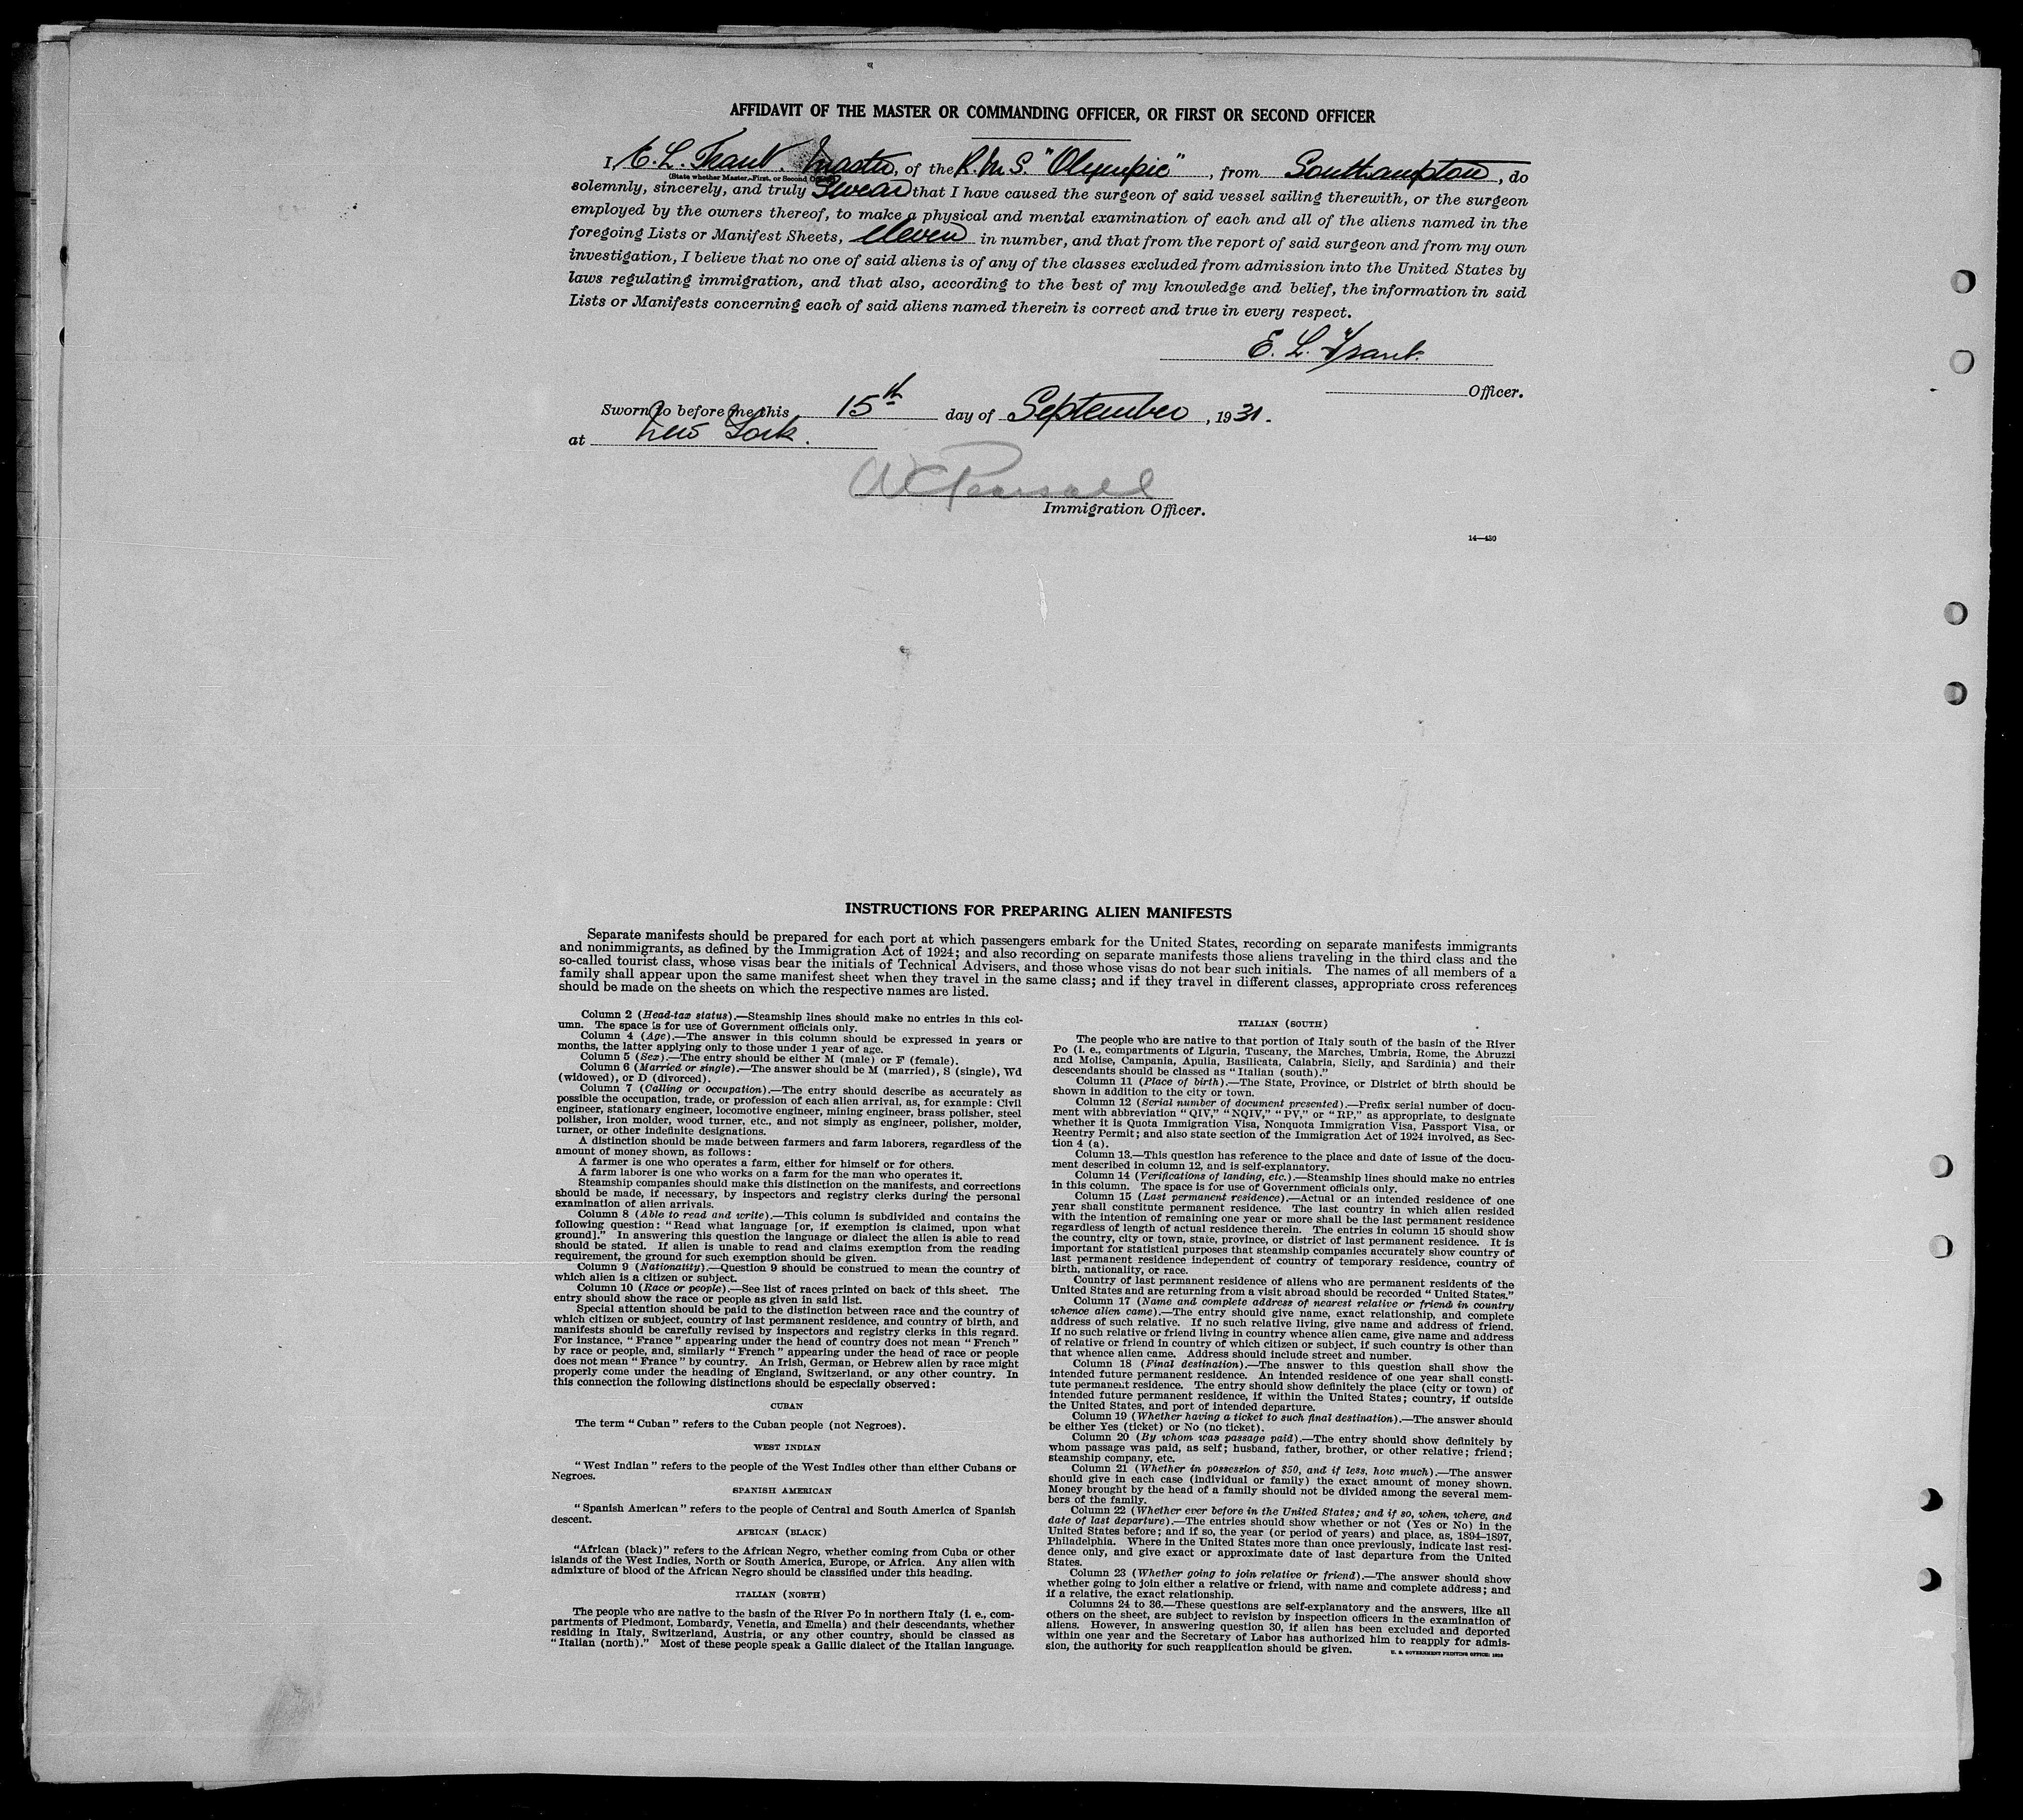 AFFIDAVIT OF THE MASTER OR COMMANDING OFFICER, OR FIRST OR SECOND OFFICER
I, E. L. Trant. Master, of the R.M.S. "Olympic", from Southampton, do
(State whether Master, First, or Second Officer)
solemnly, sincerely, and truly Swear that I have caused the surgeon of said vessel sailing therewith, or the surgeon
employed by the owners thereof, to make a physical and mental examination of each and all of the aliens named in the
foregoing Lists or Manifest Sheets, eleven in number, and that from the report of said surgeon and from my own
investigation, I believe that no one of said aliens is of any of the classes excluded from admission into the United States by
laws regulating immigration, and that also, according to the best of my knowledge and belief, the information in said
Lists or Manifests concerning each of said aliens named therein is correct and true in every respect.
E. L. Trant.
Officer.
Sworn to before me this 15th day of September, 1931.
at New York.
Immigration Officer.
14—430
INSTRUCTIONS FOR PREPARING ALIEN MANIFESTS
Separate manifests should be prepared for each port at which passengers embark for the United States, recording on separate manifests immigrants
and nonimmigrants, as defined by the Immigration Act of 1924; and also recording on separate manifests those aliens traveling in the third class and the
so-called tourist class, whose visas bear the initials of Technical Advisers, and those whose visas do not bear such initials. The names of all members of a
family shall appear upon the same manifest sheet when they travel in the same class; and if they travel in different classes, appropriate cross references
should be made on the sheets on which the respective names are listed.
Column 2 (Head-tax status).—Steamship lines should make no entries in this col-
umn. The space is for use of Government officials only.
Column 4 (Age).—The answer in this column should be expressed in years or
months, the latter applying only to those under 1 year of age.
Column 5 (Sex).—The entry should be either M (male) or F (female).
Column 6 (Married or single).—The answer should be M (married), S (single), Wd
(widowed), or D (divorced).
Column 7 (Calling or occupation).—The entry should describe as accurately as
possible the occupation, trade, or profession of each alien arrival, as, for example: Civil
engineer, stationary engineer, locomotive engineer, mining engineer, brass polisher, steel
polisher, iron molder, wood turner, etc., and not simply as engineer, polisher, molder,
turner, or other indefinite designations.
A distinction should be made between farmers and farm laborers, regardless of the
amount of money shown, as follows:
A farmer is one who operates a farm, either for himself or for others.
A farm laborer is one who works on a farm for the man who operates it.
Steamship companies should make this distinction on the manifests, and corrections
should be made, if necessary, by inspectors and registry clerks during the personal
examination of alien arrivals.
Column 8 (Able to read and write).—This column is subdivided and contains the
following question: "Read what language [or, if exemption is claimed, upon what
ground]." In answering this question the language or dialect the alien is able to read
should be stated. If alien is unable to read and claims exemption from the reading
requirement, the ground for such exemption should be given.
Column 9 (Nationality).—Question 9 should be construed to mean the country of
which alien is a citizen or subject.
Column 10 (Race or people).—See list of races printed on back of this sheet. The
entry should show the race or people as given in said list.
Special attention should be paid to the distinction between race and the country of
which citizen or subject, country of last permanent residence, and country of birth, and
manifests should be carefully revised by inspectors and registry clerks in this regard.
For instance, "France" appearing under the head of country does not mean "French"
by race or people, and, similarly "French" appearing under the head of race or people
does not mean "France" by country. An Irish, German, or Hebrew alien by race might
properly come under the heading of England, Switzerland, or any other country. In
this connection the following distinctions should be especially observed:
CUBAN
The term "Cuban" refers to the Cuban people (not Negroes).
WEST INDIAN
"West Indian" refers to the people of the West Indies other than either Cubans or
Negroes.
SPANISH AMERICAN
"Spanish American" refers to the people of Central and South America of Spanish
descent.
AFRICAN (BLACK)
"African (black)" refers to the African Negro, whether coming from Cuba or other
islands of the West Indies, North or South America, Europe, or Africa. Any alien with
admixture of blood of the African Negro should be classified under this heading.
ITALIAN (NORTH)
The people who are native to the basin of the River Po in northern Italy (i. e., com-
partments of Piedmont, Lombardy, Venetia, and Emelia) and their descendants, whether
residing in Italy, Switzerland, Austria, or any other country, should be classed as
"Italian (north)." Most of these people speak a Gallic dialect of the Italian language.
ITALIAN (SOUTH)
The people who are native to that portion of Italy south of the basin of the River
Po (i. e., compartments of Liguria, Tuscany, the Marches, Umbria, Rome, the Abruzzi
and Molise, Campania, Apulia, Basilicata, Calabria, Sicily, and Sardinia) and their
descendants should be classed as "Italian (south)."
Column 11 (Place of birth).—The State, Province, or District of birth should be
shown in addition to the city or town.
Column 12 (Serial number of document presented).—Prefix serial number of docu-
ment with abbreviation "QIV," "NQIV," "PV," or "RP," as appropriate, to designate
whether it is Quota Immigration Visa, Nonquota Immigration Visa, Passport Visa, or
Reentry Permit; and also state section of the Immigration Act of 1924 involved, as Sec-
tion 4 (a).
Column 13.—This question has reference to the place and date of issue of the docu-
ment described in column 12, and is self-explanatory.
Column 14 (Verifications of landing, etc.).—Steamship lines should make no entries
in this column. The space is for use of Government officials only.
Column 15 (Last permanent residence).—Actual or an intended residence of one
year shall constitute permanent residence. The last country in which alien resided
with the intention of remaining one year or more shall be the last permanent residence
regardless of length of actual residence therein. The entries in column 15 should show
the country, city or town, state, province, or district of last permanent residence. It is
important for statistical purposes that steamship companies accurately show country of
last permanent residence independent of country of temporary residence, country of
birth, nationality, or race.
Country of last permanent residence of aliens who are permanent residents of the
United States and are returning from a visit abroad should be recorded "United States."
Column 17 (Name and complete address of nearest relative or friend in country
whence alien came).—The entry should give name, exact relationship, and complete
address of such relative. If no such relative living, give name and address of friend.
If no such relative or friend living in country whence alien came, give name and address
of relative or friend in country of which citizen or subject, if such country is other than
that whence alien came. Address should include street and number.
Column 18 (Final destination).—The answer to this question shall show the
intended future permanent residence. An intended residence of one year shall consti-
tute permanent residence. The entry should show definitely the place (city or town) of
intended future permanent residence, if within the United States; country, if outside
the United States, and port of intended departure.
Column 19 (Whether having a ticket to such final destination).—The answer should
be either Yes (ticket) or No (no ticket).
Column 20 (By whom was passage paid).—The entry should show definitely by
whom passage was paid, as self; husband, father, brother, or other relative; friend;
steamship company, etc.
Column 21 (Whether in possession of $50, and if less, how much).—The answer
should give in each case (individual or family) the exact amount of money shown.
Money brought by the head of a family should not be divided among the several mem-
bers of the family.
Column 22 (Whether ever before in the United States; and if so, when, where, and
date of last departure).—The entries should show whether or not (Yes or No) in the
United States before; and if so, the year (or period of years) and place, as, 1894-1897,
Philadelphia. Where in the United States more than once previously, indicate last resi-
dence only, and give exact or approximate date of last departure from the United
States.
Column 23 (Whether going to join relative or friend).—The answer should show
whether going to join either a relative or friend, with name and complete address; and
if a relative, the exact relationship.
Columns 24 to 36.—These questions are self-explanatory and the answers, like all
others on the sheet, are subject to revision by inspection officers in the examination of
aliens. However, in answering question 30, if alien has been excluded and deported
within one year and the Secretary of Labor has authorized him to reapply for admis-
sion, the authority for such reapplication should be given.
U. S. GOVERNMENT PRINTING OFFICE: